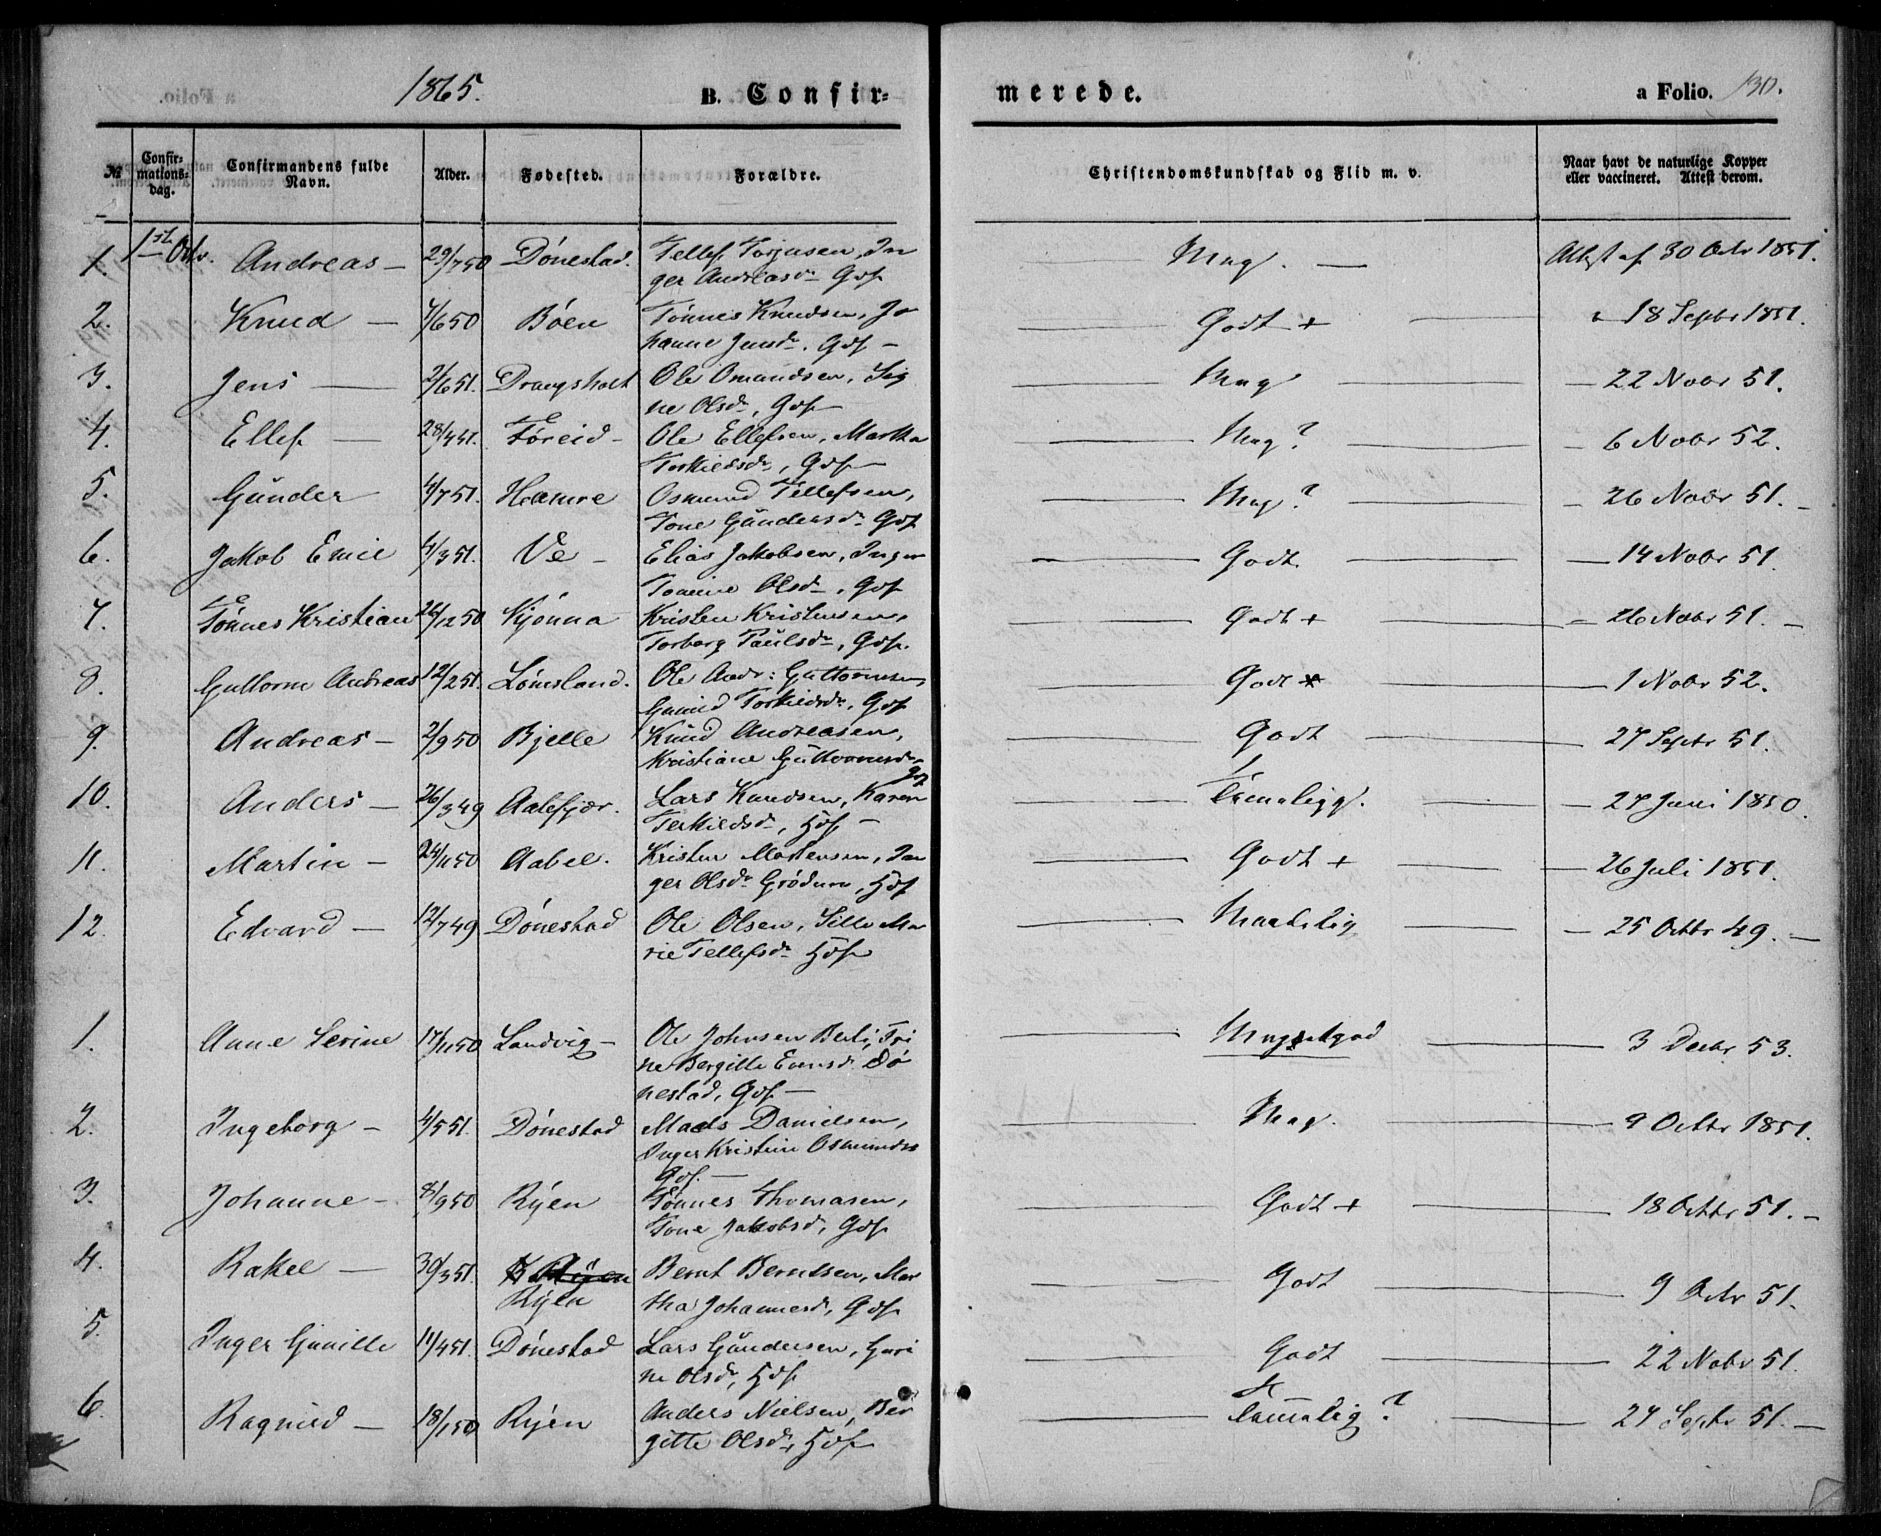 1865.
B. Confir-
merede.
a Folio. 130.
№
Confir-
mations-
dag.
Confirmandens fulde
Navn.
Alder.
Fødested.
Forældre.
Christendomskundskab og Flid m. v.
Naar havt de naturlige Kopper
eller vaccineret. Attest derom.
1. 1st Octr. Andreas – 29/7 50 Dónestad. Tellef Torjusen, In
ger Andreasdr Gdf Mag. – Attest af 30 Octr 1851.
2. Knud – 4/6 50 Bóen Tónnes Knudsen, Jo
hanne Jensdr. Gdf – Godt + " 18 Septr 1851.
3. Jens – 2/6 51. Drangsholt Ole Omundsen, Sig
ne Olsdr, Gdf – Mag – 22 Novbr 51.
4. Ellef – 28/4 51. Föreid – Ole Ellefsen, Martha
Torkildsdr, Gdf – Mag? – 6 Novbr 52.
5. Gunder 4/7 51. Hamre Osmund Tellefsen,
Tone Gundersdr Gdf Mag? – 26 Novbr 51. –
6. Jakob Emil 4/3 51. Ve – Elias Jakobsen, Inger
Tomine Olsdr, Gdf Godt. – 14 Nobr 51.
7. Tónnes Kristian 26/12 50 Kjónna Kristen Kristensen,
Torborg Paulsdr, Gdf. Godt + – 26 Nobr 51. –
8. Guttorm Andreas 12/2 51. Lómsland. Ole Andr: Guttormsen
Gunild Torkildsdr, Gdf Godt * – 1 Nobr 52.
9. Andreas – 2/9 50 Bjelle Knud Andreasen,
Kristiane Guttormsdr
Gdf Godt – 27 Septr 51.
10. Anders – 26/3 49 Aalefjær. Lars Knudsen, Karen
Terkildsdr, Hdf – Temeligg. – 27 Juni 1850.
11. Martin – 24/11 50 Aabel. Kristen Mortensen, In
ger Olsdr Gródum, Hdf Godt + – 26 Juli 1851.
12. Edvard – 12/7 49 Dónestad Ole Olsen, Sille Ma
rie Tellefsdr Hdf Maadelig – 25 Octbr 49. –
1. Anne Serine 17/11 50 Landvig – Ole Johnsen Berli, Tri
ne Bergitte Evensd. Dó
nestad, Gdf – Meget god 3 Decbr 53.
2. Ingeborg – 4/5 51. Dónestad Mads Danielsen,
Inger Kristine Osmundsd
Gdf. – Mag. 9 Octbr 1851.
3. Johanne – 8/9 50 Rÿen Tónnes Thomasen,
Tone Jakobsd, Gdf Godt + – 18 Octbr 51. –
4. Rakel – 30/3 51. Rÿen Bernt Berntsen, Mar
tha Johannesd, Gdf Godt 9 Octr 51.
5. Inger Gunille 11/4 51. Dónestad Lars Gundersen, Guri
ne Olsd, Hdf Godt – 22 Nobr 51.
6. Ragnild – 18/1 50 Rÿen Anders Nielsen, Ber
gitte Olsdr, Hdf Temelig? – 27 Septr 51. –